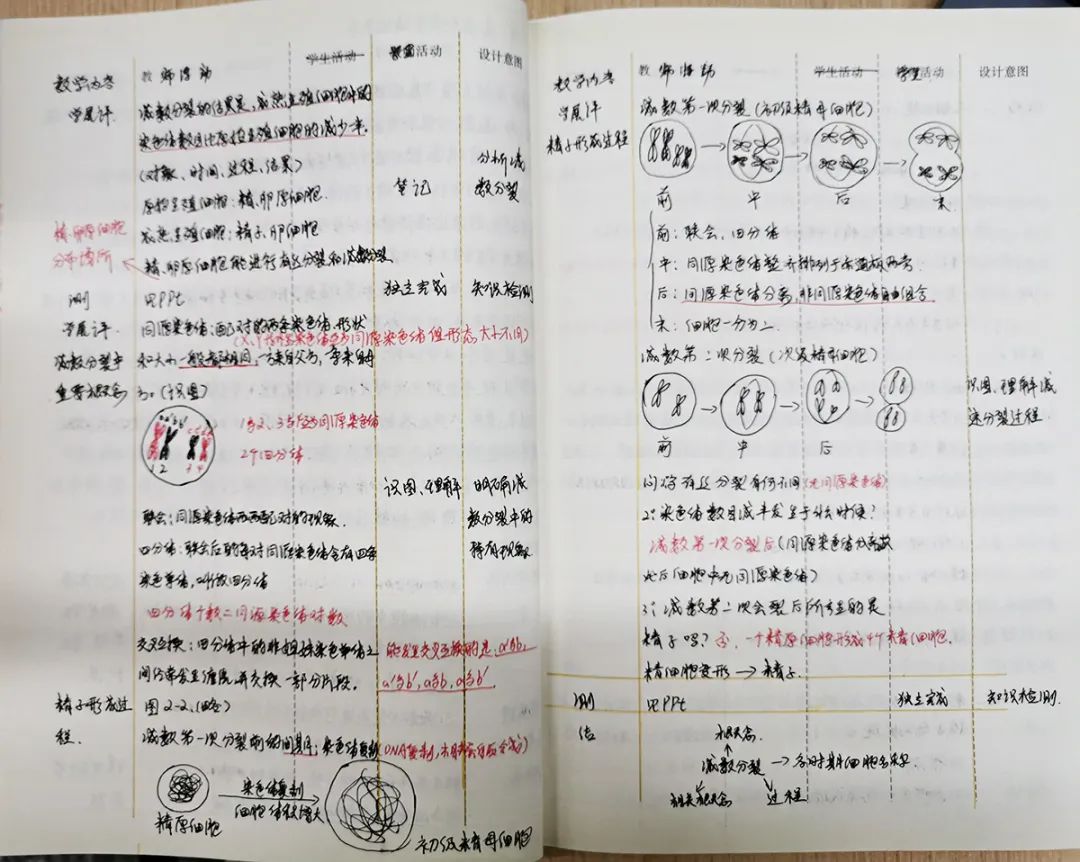 教学内容 教师活动 学生活动 学生活动 设计意图
学展评 减数分裂的结果是,成熟生殖细胞中的
染色体数目比原始生殖细胞的减少一半.
(对象、时间、过程、结果) 分析减
原始生殖细胞:精.卵原细胞. 笔记 数分裂
精.卵原细胞 成熟生殖细胞:精子.卵细胞
分布场所 精.卵原细胞能进行有丝分裂和减数分裂
测 见PPt 独立完成 知识检测
学展评. 同源染色体:配对的两条染色体.形状
(X、Y 同源染色体 但形态,大小不同)
减数分裂中 和大小一般都相同,一条来自父方,一条来自
重要概念 母方。(识图)
1与2、3与4为同源染色体
2个四分体.
1 2 3 4
识图、理解 明确减
联会:同源染色体两两配对的现象. 数分裂中的
四分体:联会后的每对同源染色体含有四条 特有现象
染色单体,叫做四分体
四分体个数=同源染色体对数
交叉互换:四分体中的非姐妹染色单体之 能发生交叉互换的是:a'与b,
间经常会发生缠绕.并交换一部分片段. a'与b',a与b,a与b'.
精子形成过 图2-2.(略)
程. 减数第一次分裂前的间期:染色体复制(DNA复制,)
染色体复制
细胞体积增大
精原细胞 初级精母细胞
教学内容 教师活动 学生活动 学生活动 设计意图
学展评 减数第一次分裂(初级精母细胞)
精子形成过程
前 中 后 末
前:联会、四分体
中:同源染色体整齐排列于赤道板两旁.
后:同源染色体分离,非同源染色体自由组合
末:细胞一分为二
减数第二次分裂(次级精母细胞)
识图、理解减
数分裂过程
前 中 后
问:与有丝分裂有何不同(无同源染色体)
2:染色体数目减半发生于什么时候?
减数第一次分裂后(同源染色体分离故
此后细胞中无同源染色体)
3:减数第二次分裂后所产生的是
精子吗?否,一个精原细胞形成4个精细胞.
精细胞变形→精子.
测 见PPt 独立完成 知识检测.
结 概念
减数分裂→各时期细胞名称.
相关概念 过程